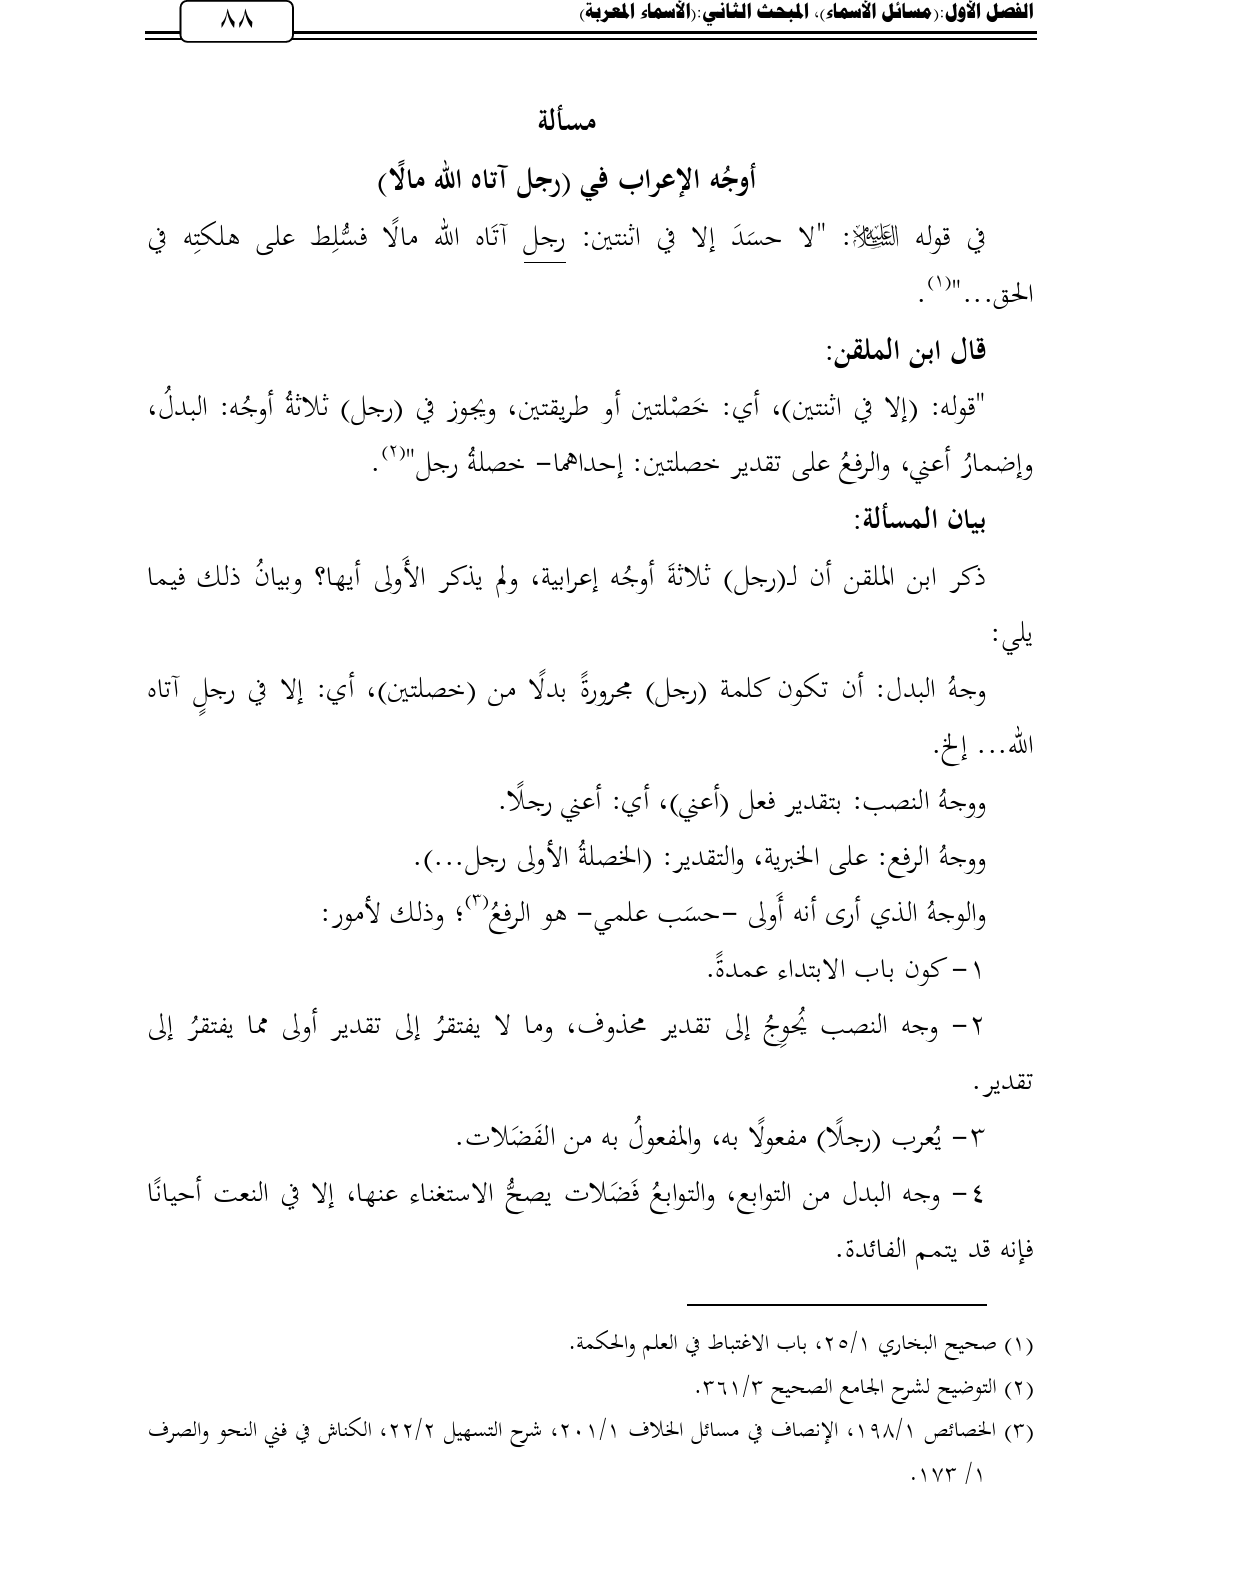 الفصل الأول:(مسائل الأسماء)، المبحث الثاني:(الأسماء المعربة)
٨٨
مسألة
أوجُه الإعراب في (رجل آتاه الله مالًا)
في قوله عليه السلام: "لا حسَدَ إلا في اثنتين: رجل آتَاه الله مالًا فسُّلِط على هلكتِه في
الحق..."(١).
قال ابن الملقن:
"قوله: (إلا في اثنتين)، أي: خَصْلتين أو طريقتين، ويجوز في (رجل) ثلاثةُ أوجُه: البدلُ،
وإضمارُ أعني، والرفعُ على تقدير خصلتين: إحداهما– خصلةُ رجل"(٢).
بيان المسألة:
ذكر ابن الملقن أن لـ(رجل) ثلاثةَ أوجُه إعرابية، ولم يذكر الأَولى أيها؟ وبيانُ ذلك فيما
يلي:
وجهُ البدل: أن تكون كلمة (رجل) مجرورةً بدلًا من (خصلتين)، أي: إلا في رجلٍ آتاه
الله... إلخ.
ووجهُ النصب: بتقدير فعل (أعني)، أي: أعني رجلًا.
ووجهُ الرفع: على الخبرية، والتقدير: (الخصلةُ الأولى رجل...).
والوجهُ الذي أرى أنه أَولى –حسَب علمي– هو الرفعُ(٣)؛ وذلك لأمور:
١– كون باب الابتداء عمدةً.
٢– وجه النصب يُحوِجُ إلى تقدير محذوف، وما لا يفتقرُ إلى تقدير أولى مما يفتقرُ إلى
تقدير.
٣– يُعرب (رجلًا) مفعولًا به، والمفعولُ به من الفَضَلات.
٤– وجه البدل من التوابع، والتوابعُ فَضَلات يصحُّ الاستغناء عنها، إلا في النعت أحيانًا
فإنه قد يتمم الفائدة.
(١) صحيح البخاري ٢٥/١، باب الاغتباط في العلم والحكمة.
(٢) التوضيح لشرح الجامع الصحيح ٣٦١/٣.
(٣) الخصائص ١٩٨/١، الإنصاف في مسائل الخلاف ٢٠١/١، شرح التسهيل ٢٢/٢، الكناش في فني النحو والصرف
١/ ١٧٣.